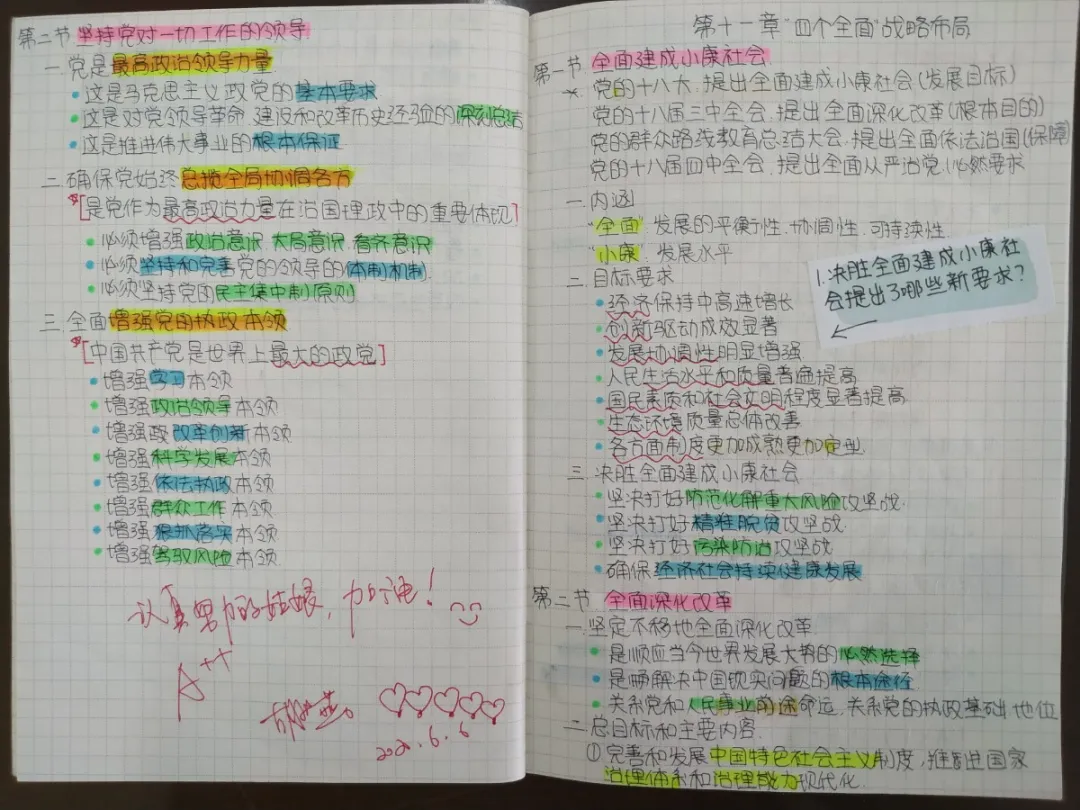 第二节 坚持党对一切工作的领导
一.党是最高政治领导力量
• 这是马克思主义政党的基本要求
• 这是对党领导革命、建设和改革历史经验的深刻总结
• 这是推进伟大事业的根本保证
二.确保党始终总揽全局协调各方
[是党作为最高政治力量在治国理政中的重要体现]
• 必须增强政治意识、大局意识、看齐意识
• 必须坚持和完善党的领导的体制机制
• 必须坚持党的民主集中制原则
三.全面增强党的执政本领
[中国共产党是世界上最大的政党]
• 增强学习本领
• 增强政治领导本领
• 增强改革创新本领
• 增强科学发展本领
• 增强依法执政本领
• 增强群众工作本领
• 增强狠抓落实本领
• 增强驾驭风险本领
认真努力的姑娘，加油！
A++
2020.6.6
第十一章“四个全面”战略布局
第一节 全面建成小康社会
* 党的十八大：提出全面建成小康社会(发展目标)
党的十八届三中全会：提出全面深化改革(根本目的)
党的群众路线教育总结大会：提出全面依法治国(保障)
党的十八届四中全会：提出全面从严治党(必然要求
一.内涵
“全面”：发展的平衡性、协调性、可持续性
“小康”：发展水平
二.目标要求
• 经济保持中高速增长
• 创新驱动成效显著
• 发展协调性明显增强
• 人民生活水平和质量普遍提高
• 国民素质和社会文明程度显著提高
• 生态环境质量总体改善
• 各方面制度更加成熟更加定型
1.决胜全面建成小康社
会提出了哪些新要求？
三.决胜全面建成小康社会
• 坚决打好防范化解重大风险攻坚战
• 坚决打好精准脱贫攻坚战
• 坚决打好污染防治攻坚战
• 确保经济社会持续健康发展
第二节 全面深化改革
一.坚定不移地全面深化改革
• 是顺应当今世界发展大势的必然选择
• 是解决中国现实问题的根本途径
• 关系党和人民事业前途命运，关系党的执政基础、地位
二.总目标和主要内容
①完善和发展中国特色社会主义制度，推进国家
治理体系和治理能力现代化